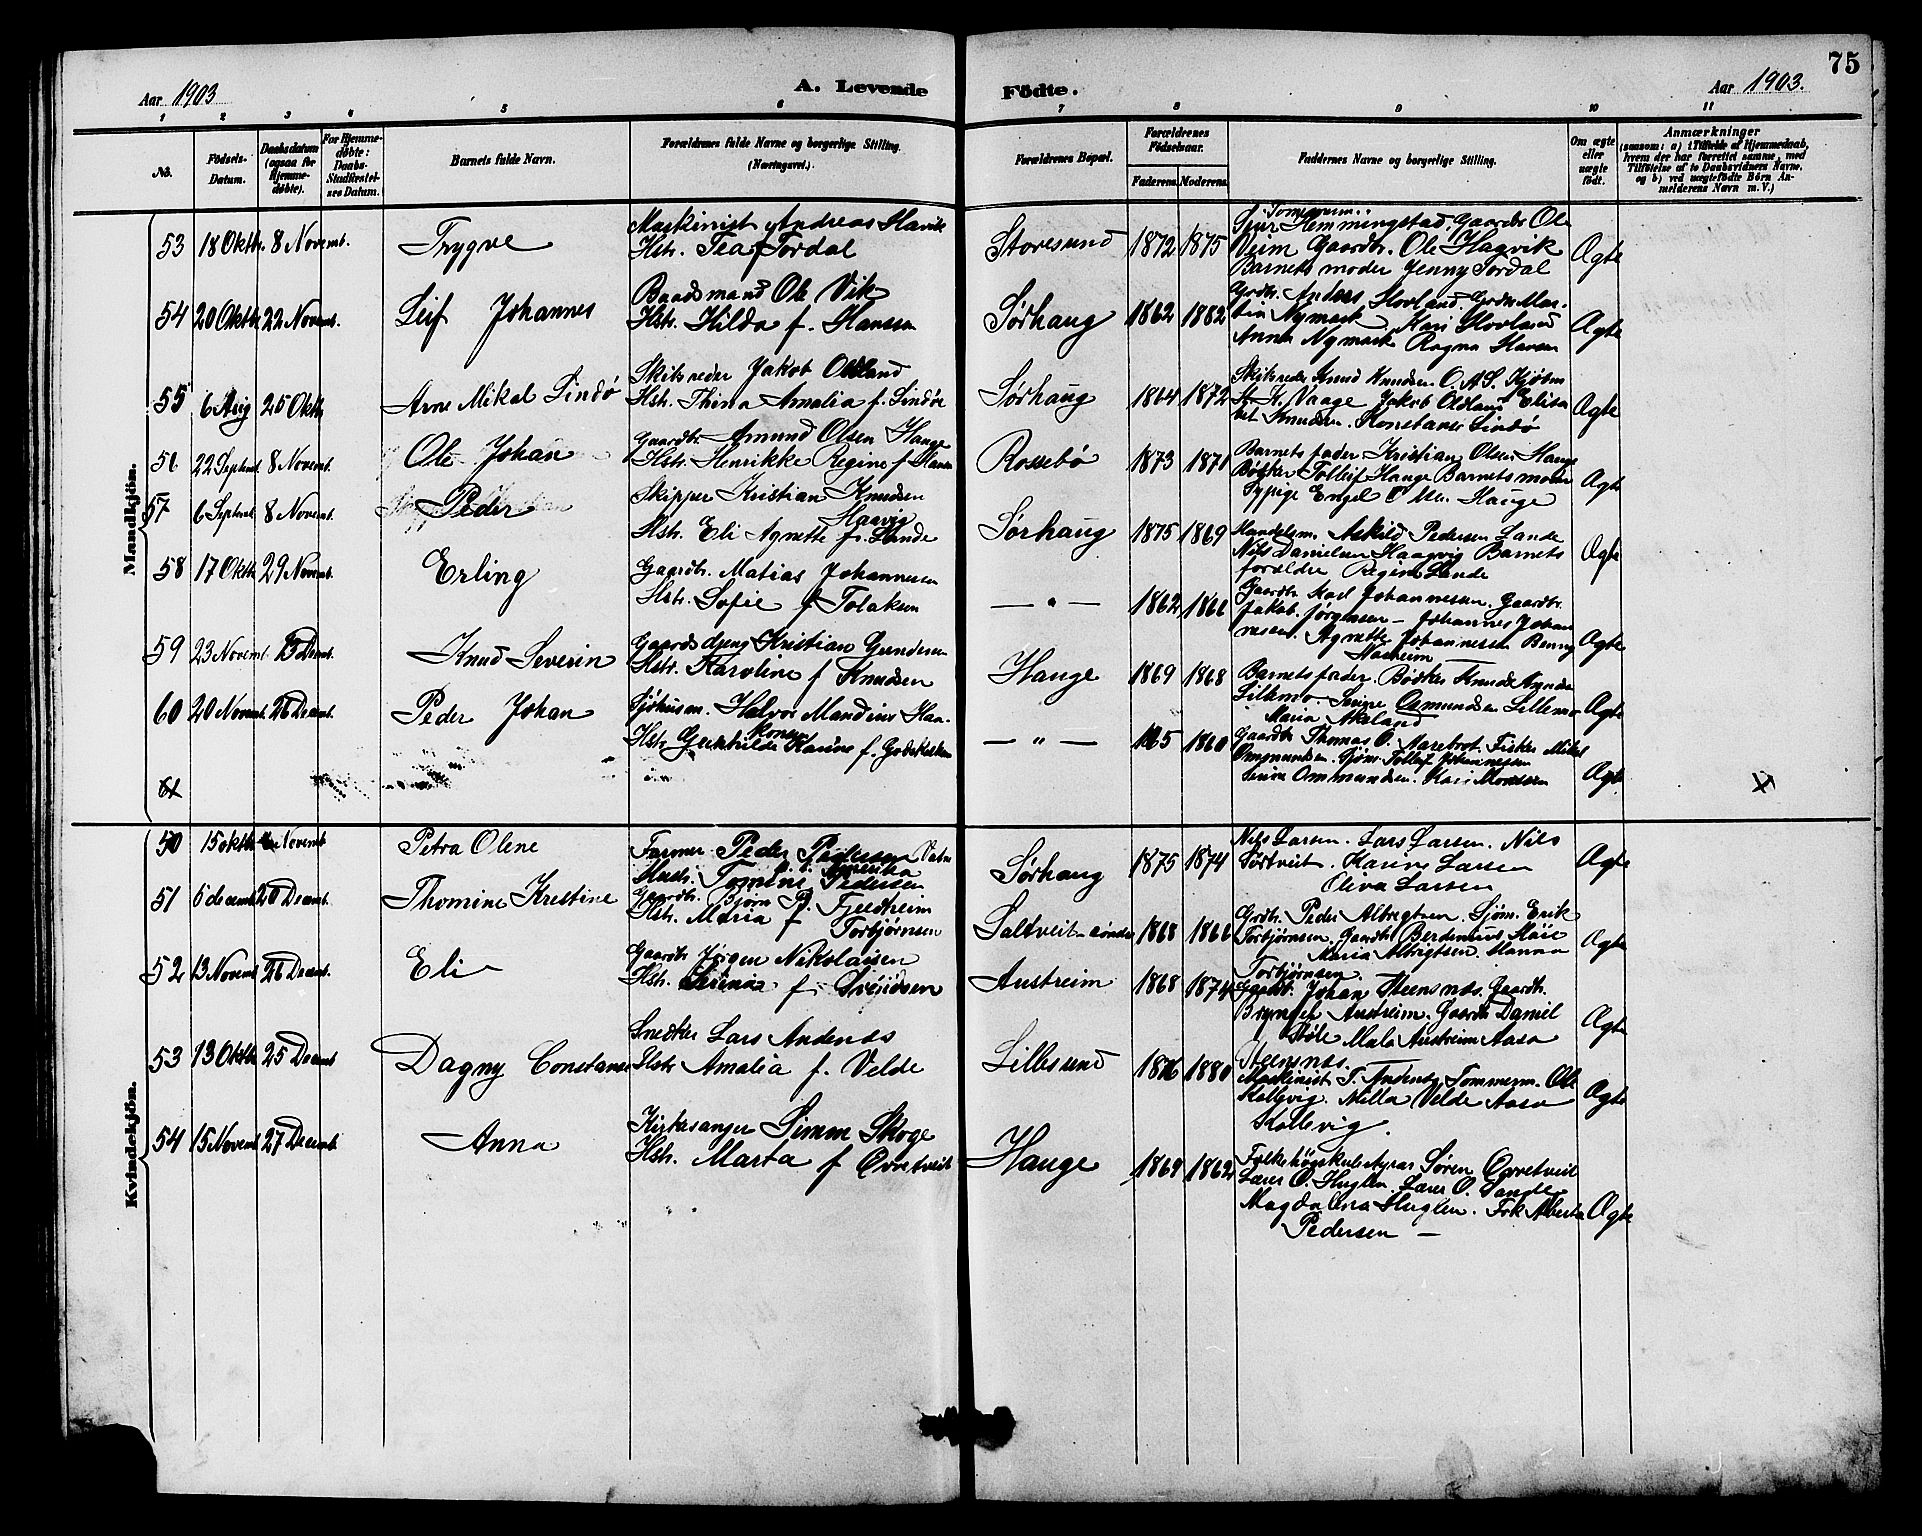 75
Aar 1903
A. Levende Födte.
Aar 1903.
1 2 3 4 5 6 7 8 9 10 11
No.
Födsels-Datum.
Daabsdatum (ogsaa for Hjemmedøbte).
For Hjemmedøbte: Daabs-Stadfæstelsens Datum.
Barnets fulde Navn.
Forældrenes fulde Navne og borgerlige Stilling.
(Næringsvei.)
Forældrenes Bopæl.
Forældrenes Födselsaar.
Faderens. Moderens.
Faddernes Navne og borgerlige Stilling.
Om ægte eller uægte født.
Anmærkninger
(saasom: a) i Tilfælde af Hjemmedaab, hvem der har forrettet samme, med Tilföielse af to Daabsvidners Navne, og b) ved uægtefödte Börn Anmelderens Navn m. V.)
Mandkjön.
53 18 Oktb. 8 Novemb. Trygve
Maskinist Andreas
Hstr. Tea f Tordal
Storesund 1872 1875
Sjur Hemmingstad, Gaardbr Ole
Veim Gaardbr. Ole Hagvik
Barnets moder Jenny Tordal
Ægte
54 20 Oktb 22 Novemb. Leif Johannes
Baadsmand Ole Vik
Hstr. Hilda f. Hansen
Sørhaug 1862 1882
Grdbr. Anders Hovland
Nymark Kari Hovland
Anna Nymark Ragna
Ægte
55 6 Aug 25 Oktb Arne Mikal Lindø
Skibsreder Jakob Odland
Hstr. Thina Amalia f. Lindøe
Sørhaug 1864 1872
Skibsreder Knud Knudsen O. A. S.
Vaage Jakob Odland Elisa
bet Knudsen. Konstanse Lindø
Ægte
56 22 Septemb. 8 Novemb. Ole Johan
Gaardbr. Amund Olsen Hauge
Hstr. Henrikke Regine f
Rossebø 1873 1871
Barnets fader Kristian Olsen Hauge
Bødker Tolleif Hauge Barnets moder
Sypige Engel Hauge
Ægte
57 6 Septemb. 8 Novemb. Peder
Skipper Kristian Knudsen
Haavig
Hstr. Eli Agnette f. Lande
Sørhaug 1875 1869
Handelsm. Askild Pedersen Lande
Nils Danielsen Haagvig Barnets
forældre Regine Lande
Ægte
58 17 Oktb 29 Novemb. Erling
Gaardbr. Matias Johannesen
Hstr. Sofie f Tolaksen
— " — 1862 1866
Gaardbr Karl Johannesen. Gaardbr.
Jakob Jørgensen — Johannes Johan
nesen. Agnette Johannessen Benny
Ægte
59 23 Novemb. 13 Decemb. Knud Severin
Gaardsdreng Kristian Gundersen
Hstr. Karoline f Knudsen
Hauge 1869 1868
Barnets fader. Bødker Knud
Lillemo. Serine Osmundsen Lillemo
Maria Akeland
Ægte
60 20 Novemb. 26 Decemb. Peder Johan
Halvor Mandius
Hstr Gunhilde Karine f. Godskalksen
— " — 1865 1860
Gaardbr Thomas O. Aarebrot. Fisker Mikal
Ommundsen. Sjøm. Tolleif Johannessen
Serine Ommundsen. Kari Monssen
Ægte
61
Kvindekjön.
50 15 Oktb Novemb Petra Olene
Farmer Peder Pedersen
Amerika
Hustr. Tomine Pedersen
Sørhaug 1875 1874
Nils Larsen. Lars Larsen. Nils
Sørtveit. Karine Larsen
Oliva Larsen
Ægte
51 6 decemb 20 Decemb. Thomine Kristine
Gaardbr. Bjørn P. Fjeldheim
Hstr. Maria f Torbjørnsen
Saltveit-søndre 1868 1866
Grdbr. Peder Albregtsen. Sjøm. Erik
Torbjørnsen. Gaardbr Berdinius
Maria Albrigtsen. Hanna
Torbjørnsen.
Ægte
52 13 Novemb 26 Decemb. Eli
Gaardb Jørgen Nikolaisen
Hstr. Serina f
Austreim 1868 1874
Gaardb. Johan Steensnæs. Gaardb.
Brynjel Austreim. Gaardb Daniel
Mala Austreim Aasa
Steensnæs.
Ægte
53 13 Oktb 25 Decemb Dagny Constanse
Snedker Lars Andenæs
Hstr Amalia f. Velde
Lillesund 1876 1880
Maskinist T. Andenæs. Tømmerm. Ole
Kollevig. Milla Velde Aasa
Kollevig.
Ægte
54 15 Novemb 27 Decemb Anna
Kirkesanger Simon Skoge
Hstr. Marta f Øvretveit
Hauge 1869 1862
Folkehögskulestyrar Søren Øvretveit
Lærer O. Huglen. Lærer O. Sande.
Magdalena Huglen. Frk Alberta
Pedersen —
Ægte